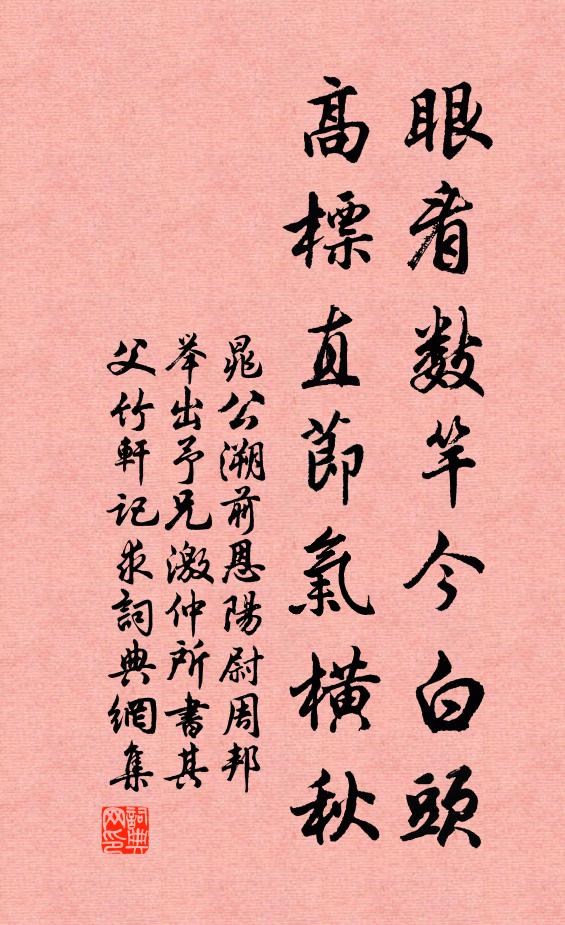 眼看數竿今白頭
高標直節氣橫秋
晁公溯前恩陽尉周邦
举出予兄激仲所書其
父竹軒記求詞典網集
詞典网印